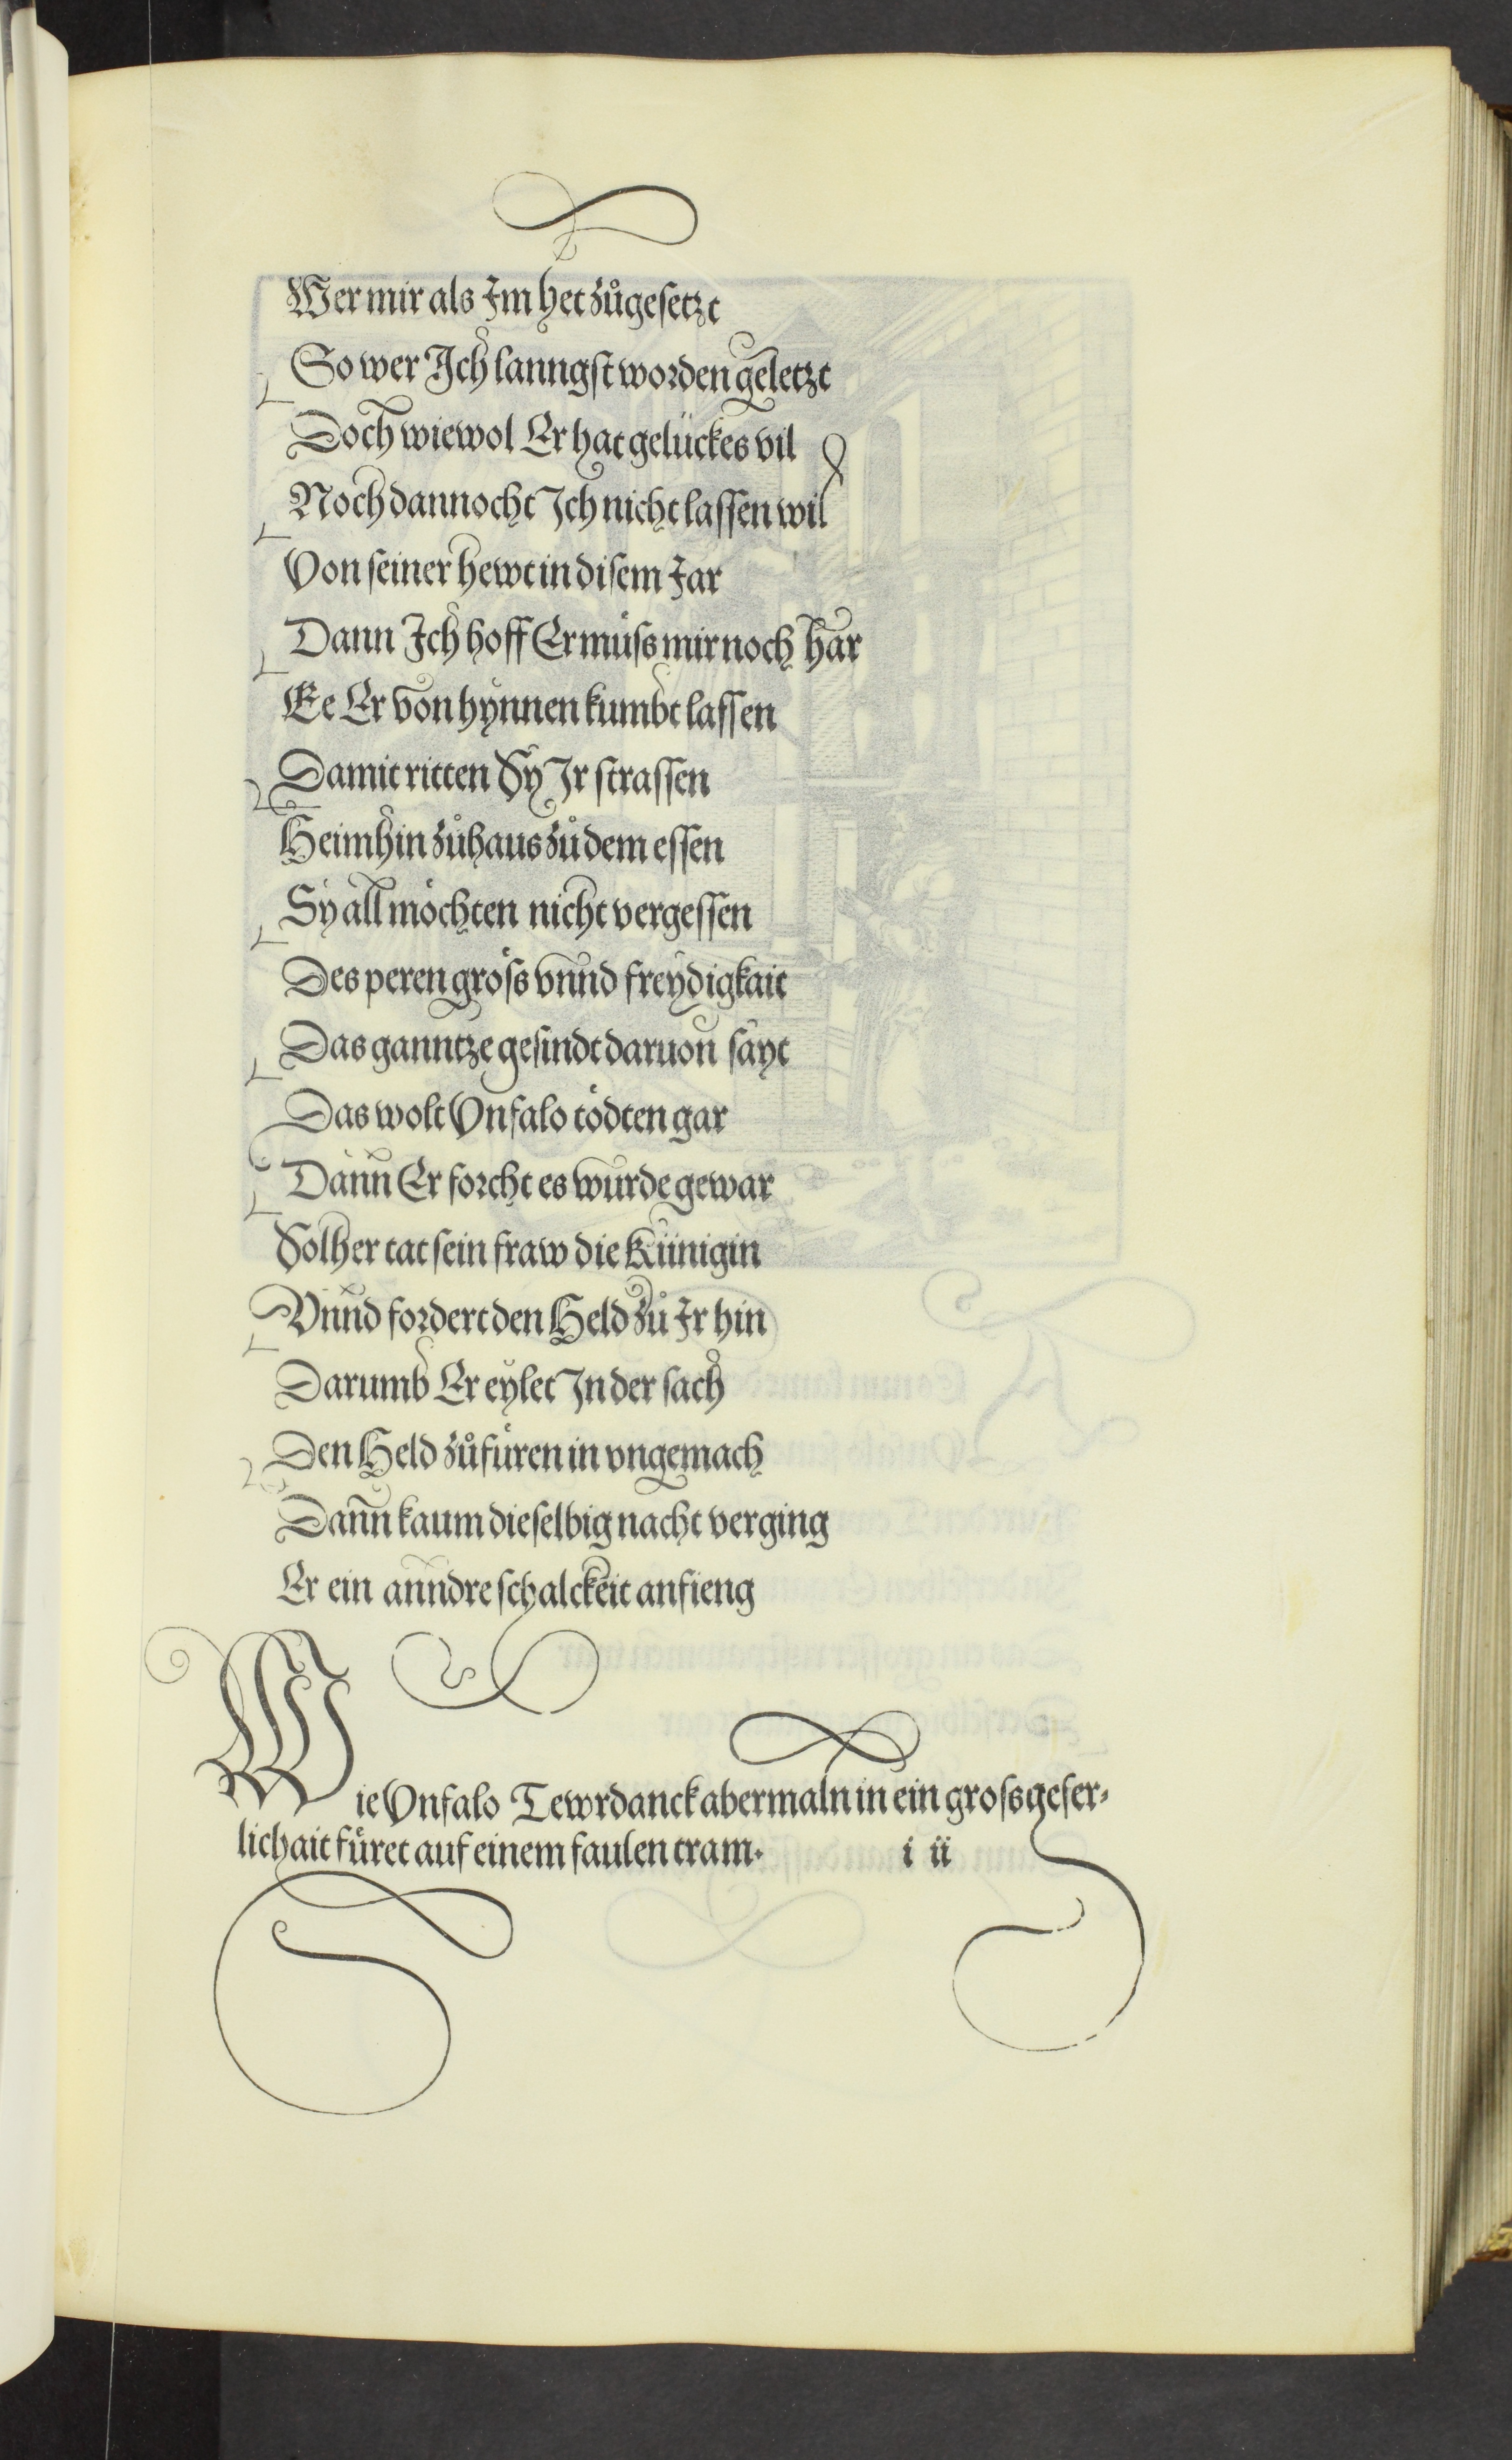 Wer mir als Im het zůgesetzt
So wer Ich lanngst worden geletzt
Doch wiewol Er hat gelückes vil
Noch dannocht Ich nicht lassen wil
Von seiner hewt in disem Jar
Dann Ich hoff Er müss mir noch har
Ee Er von hynnen kumbt lassen
Damit ritten Sy Ir strassen
Heimhin zůhaus zů dem essen
Sy all möchten nicht vergessen
Des peren gröss vnnd freydigkait
Das ganntze gesindt daruon sayt
Das wolt Vnfalo tödten gar
Dann Er forcht es wurde gewar
Solher tat sein fraw die Künigin
Vnnd fordert den Held zů Ir hin
Darumb Er eylet In der sach
Den Held zůfüren in vngemach
Dann kaum dieselbig nacht verging
Er ein anndre schalckeit anfieng
Wie Vnfalo Tewrdanck abermaln in ein gross gefer⸗
lichait füret auf einem faulen tram. i ii